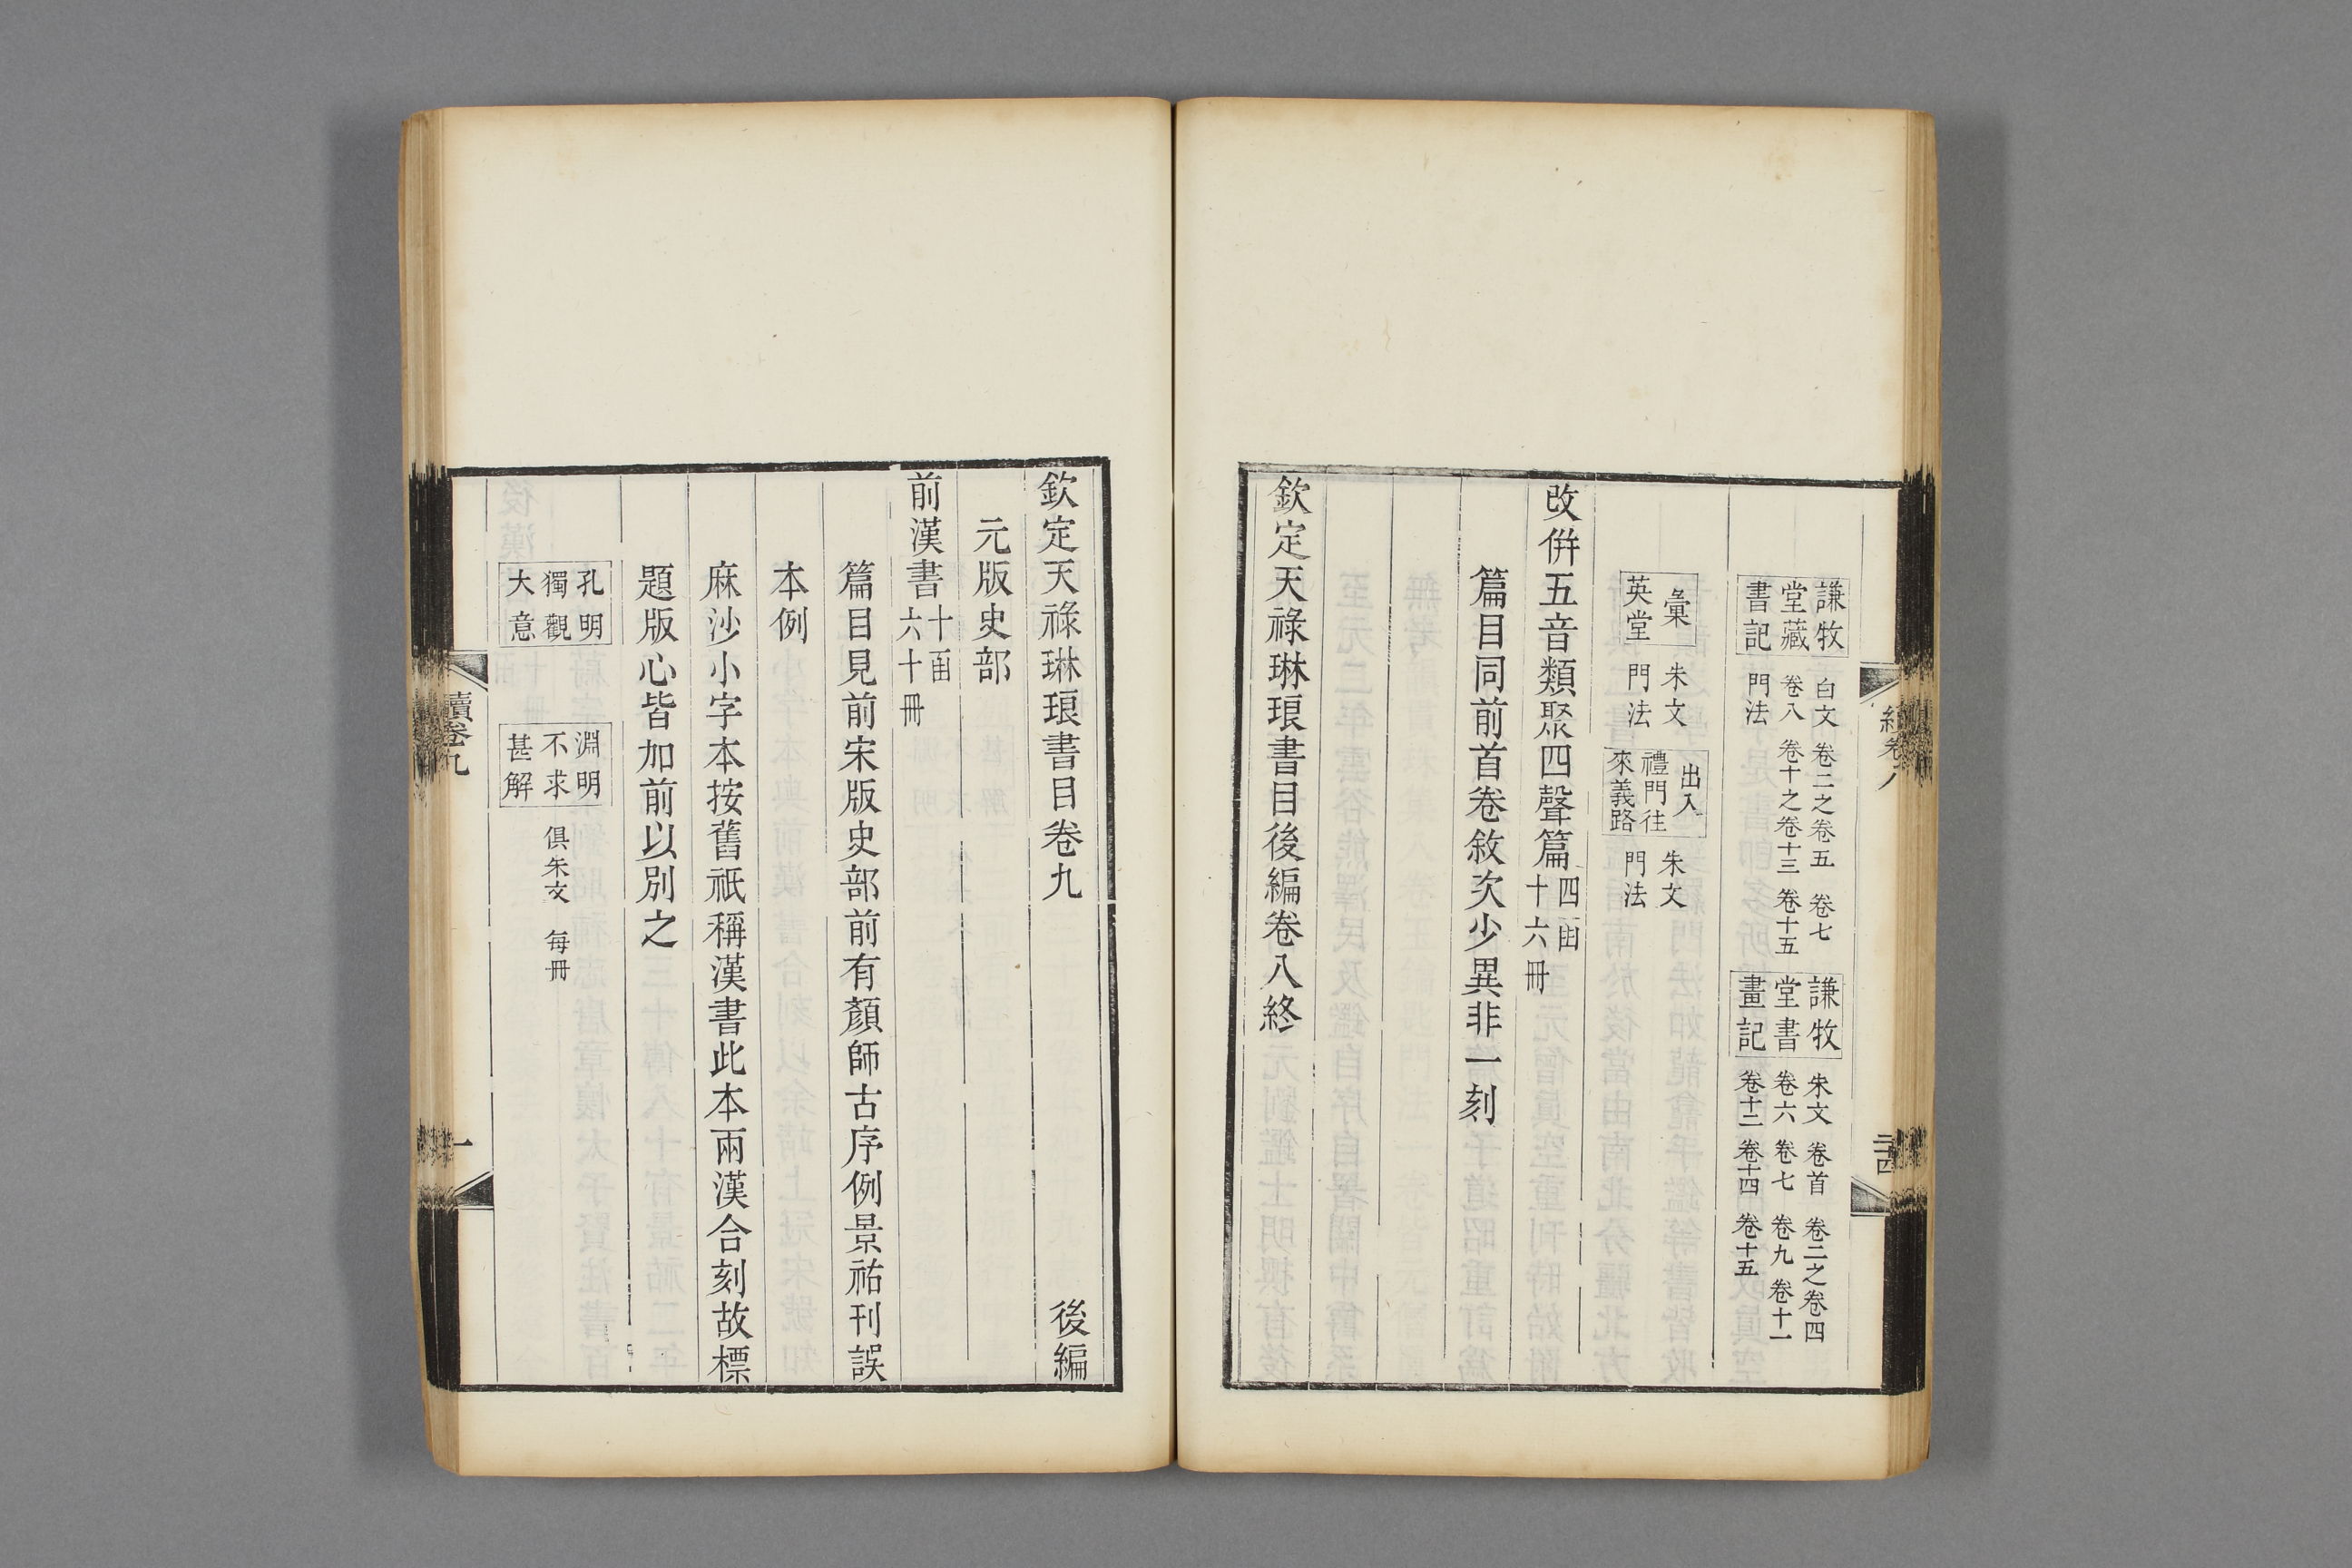 謙牧堂藏書記 白文 卷二之卷五 卷七 卷八 卷十之卷十三 卷十五 門法 謙牧堂書畫記 朱文 卷首 卷二之卷四 卷六 卷七 卷九 卷十一 卷十二 卷十四 卷十五
彙英堂 朱文 門法 出入禮門往來義路 朱文 門法
改併五音類聚四聲篇 四函 十六冊
篇目同前首卷敘次少異非一刻
欽定天祿琳琅書目後編卷八終
卷八
二十四
欽定天祿琳琅書目卷九 後編
元版史部
前漢書 十函 六十冊
篇目見前宋版史部前有顏師古序例景祐刊誤
本例
麻沙小字本按舊祇稱漢書此本兩漢合刻故標
題版心皆加前以別之
孔明獨觀大意 淵明不求甚解 俱朱文 每冊
續卷九
一